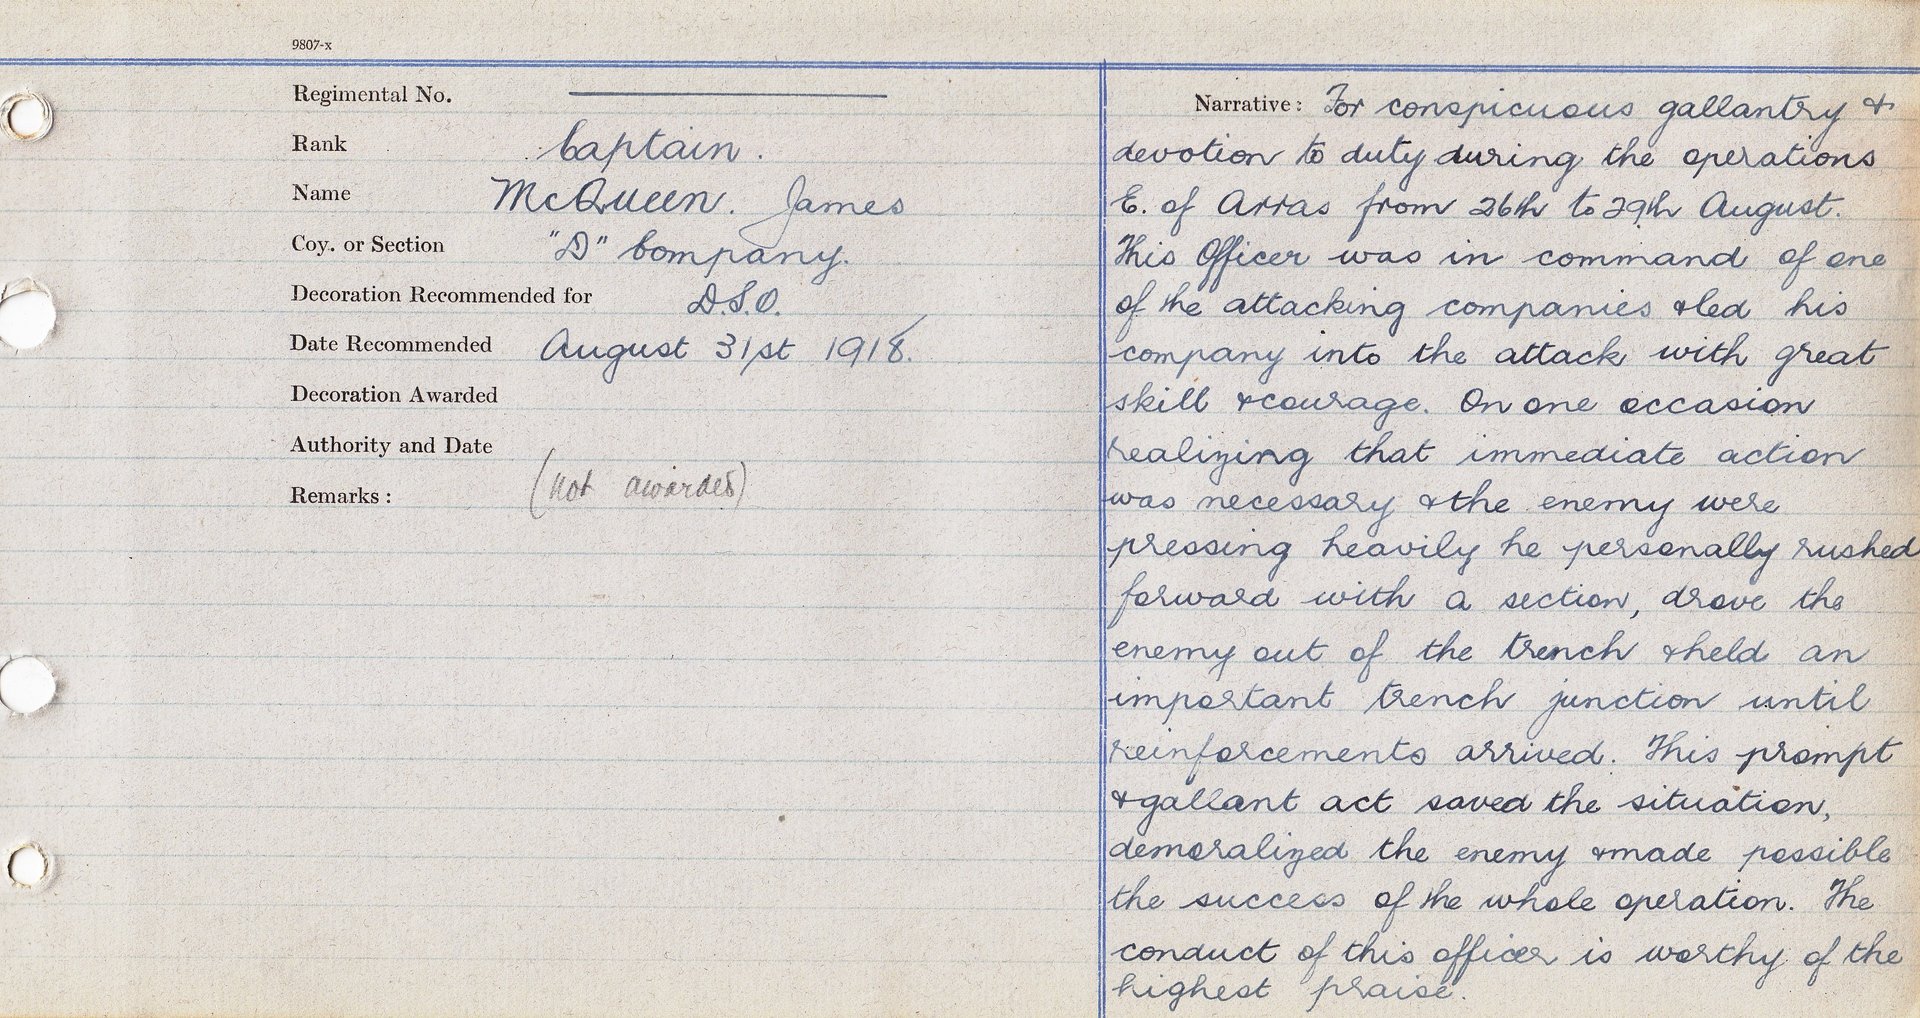 9807-x
Regimental No.
Rank Captain.
Name McQueen. James
Coy. or Section "D" Company.
Decoration Recommended for D.S.O.
Date Recommended August 31st 1918.
Decoration Awarded
Authority and Date
Remarks: (not awarded)
Narrative: For conspicuous gallantry &
devotion to duty during the operations
E. of Arras from 26th to 29th August.
This Officer was in command of one
of the attacking companies & led his
company into the attack with great
skill & courage. On one occasion
realizing that immediate action
was necessary & the enemy were
pressing heavily he personally rushed
forward with a section, drove the
enemy out of the trench & held an
important trench junction until
reinforcements arrived. This prompt
& gallant act saved the situation,
demoralized the enemy & made possible
the success of the whole operation. The
conduct of this officer is worthy of the
highest praise.